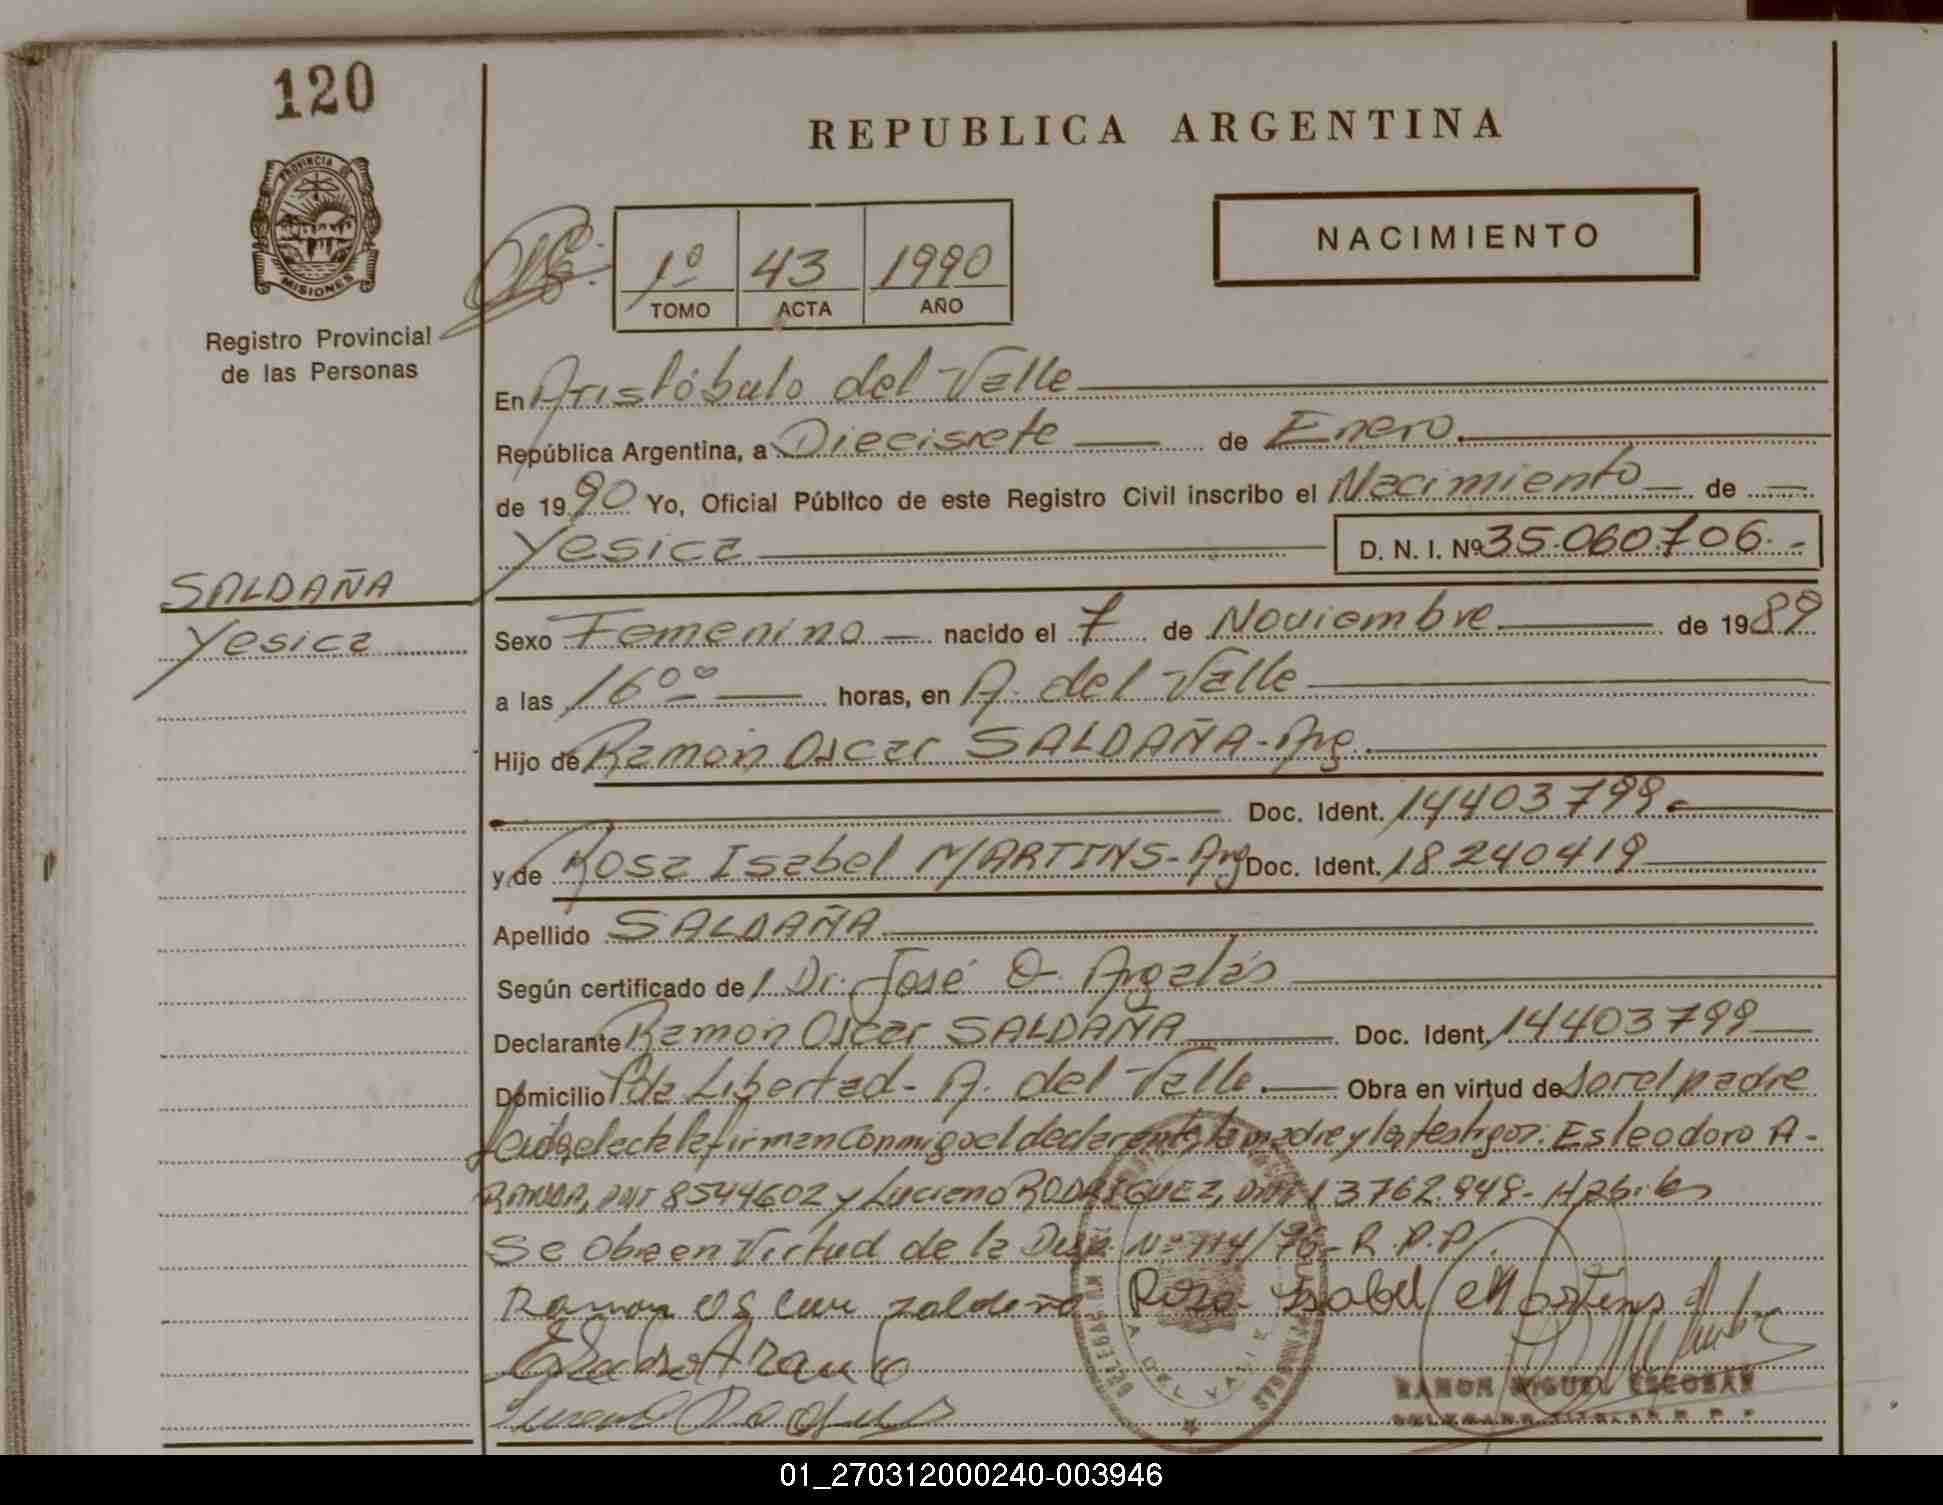 120
REPUBLICA ARGENTINA
PROVINCIA DE
MISIONES
Registro Provincial
de las Personas
1º 43 1990
TOMO ACTA AÑO
NACIMIENTO
En Aristóbulo del Valle
República Argentina, a Diecisiete de Enero
de 1990 Yo, Oficial Público de este Registro Civil inscribo el Nacimiento de
Yesica D. N. I. Nº 35.060.706.-
SALDAÑA
Yesica
Sexo Femenino nacido el 7 de Noviembre de 1989
a las 16ºº horas, en A. del Valle
Hijo de Ramón Oscar SALDAÑA-Arg.
Doc. Ident. 14403799.
y de Rosa Isabel MARTINS-Arg Doc. Ident. 18240419
Apellido SALDAÑA
Según certificado del Dr. José O. Argalás
Declarante Ramón Oscar SALDAÑA Doc. Ident. 14403799
Domicilio Pda Libertad- A. del Valle. Obra en virtud de ser el padre
Leida el acta la firman conmigo el declarante, la madre y los testigos: Esleodoro A-
RANDA, DNI 8544602 y Luciano RODRIGUEZ, DNI 13762.948-Hábiles
Se Obra en Virtud de la Disp. Nº 114/ R.P.P.
Ramon Oscar zaldaña Rosa Isabel Martins
RAMON MIGUEL ESCOBAR
DELEGADO TITULAR R P P
01_270312000240-003946